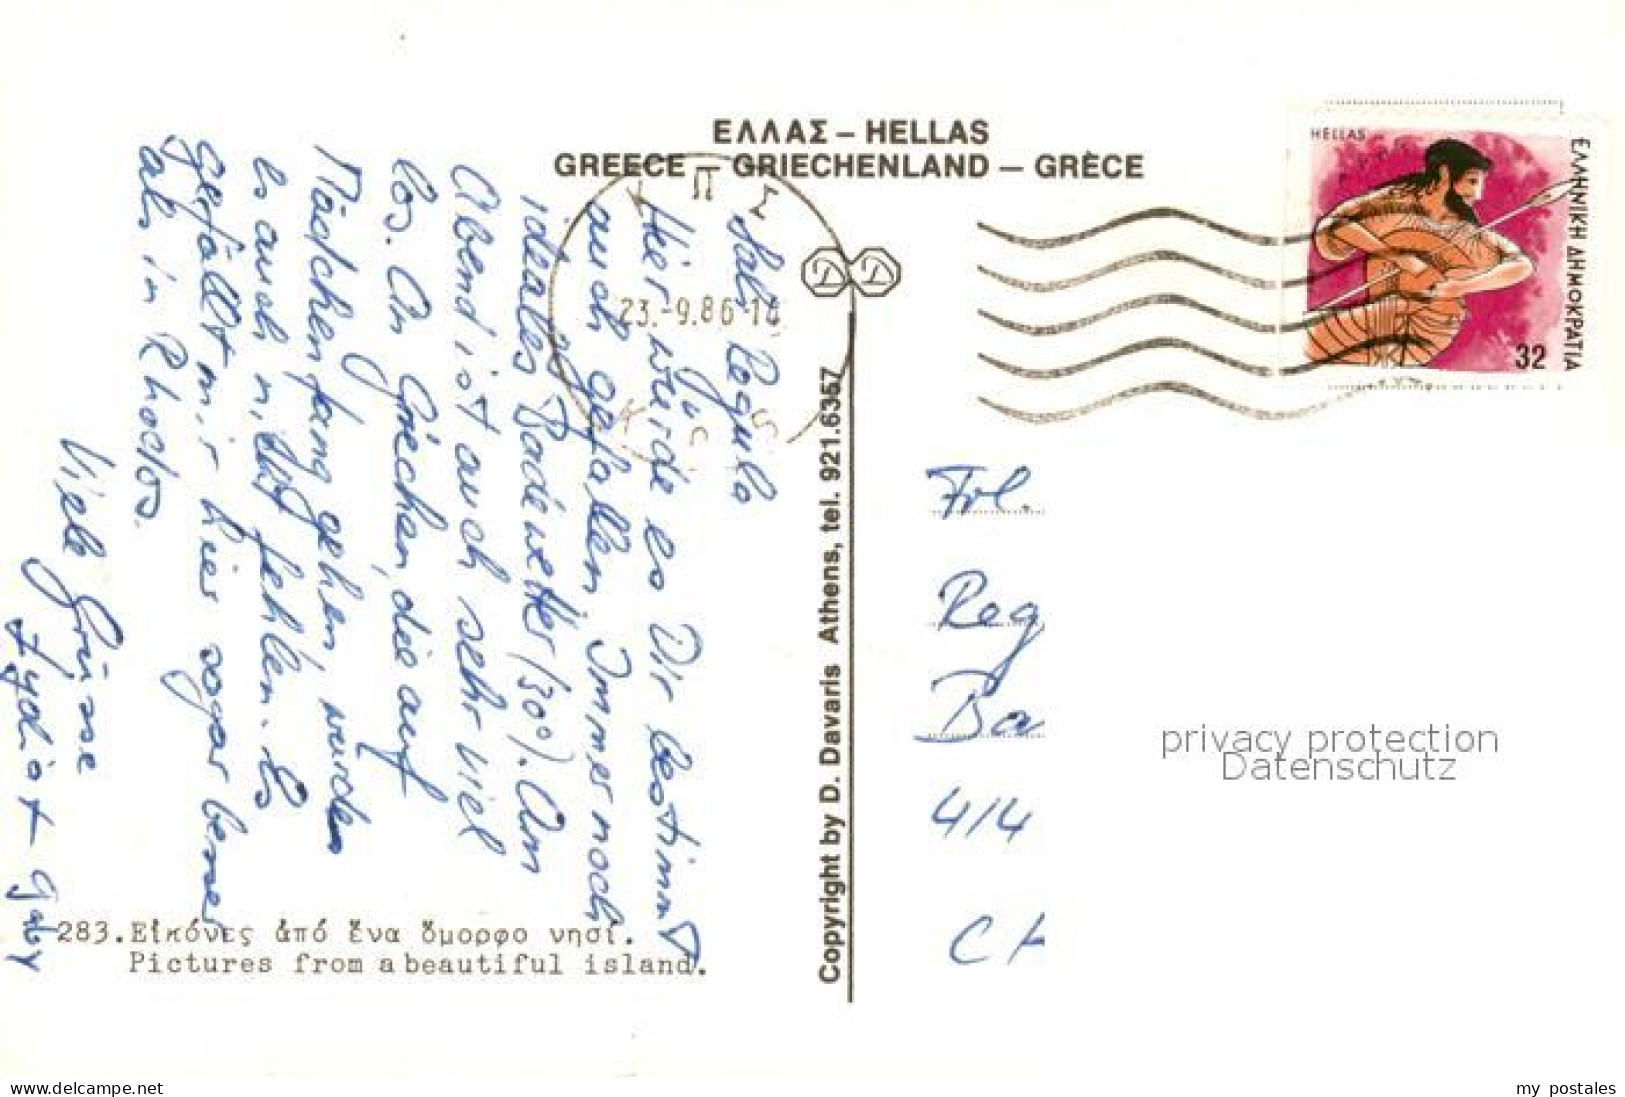 ΕΛΛΑΣ – HELLAS
GREECE – GRIECHENLAND – GRÈCE
HELLAS
ΕΛΛΗΝΙΚΗ ΔΗΜΟΚΡΑΤΙΑ
32
23.-9.86-1
Sali Regula
Hier würde es Dir bestimmt
auch gefallen. Immer noch
ideales Badewetter (30°). Am
Abend ist auch sehr viel
los. An Griechen, die auf
Mädchenfang gehen, würde
es auch nicht fehlen. Es
gefällt mir hier sogar besser
als in Rhodos.
Viele Grüsse
+ Gaby
Copyright by D. Davaris Athens, tel. 921.6357
Frl.
Reg
Ba
414
CH
privacy protection
Datenschutz
283. Εἰκόνες ἀπό ἕνα ὄμορφο νησί.
Pictures from a beautiful island.
www.delcampe.net
my_postales